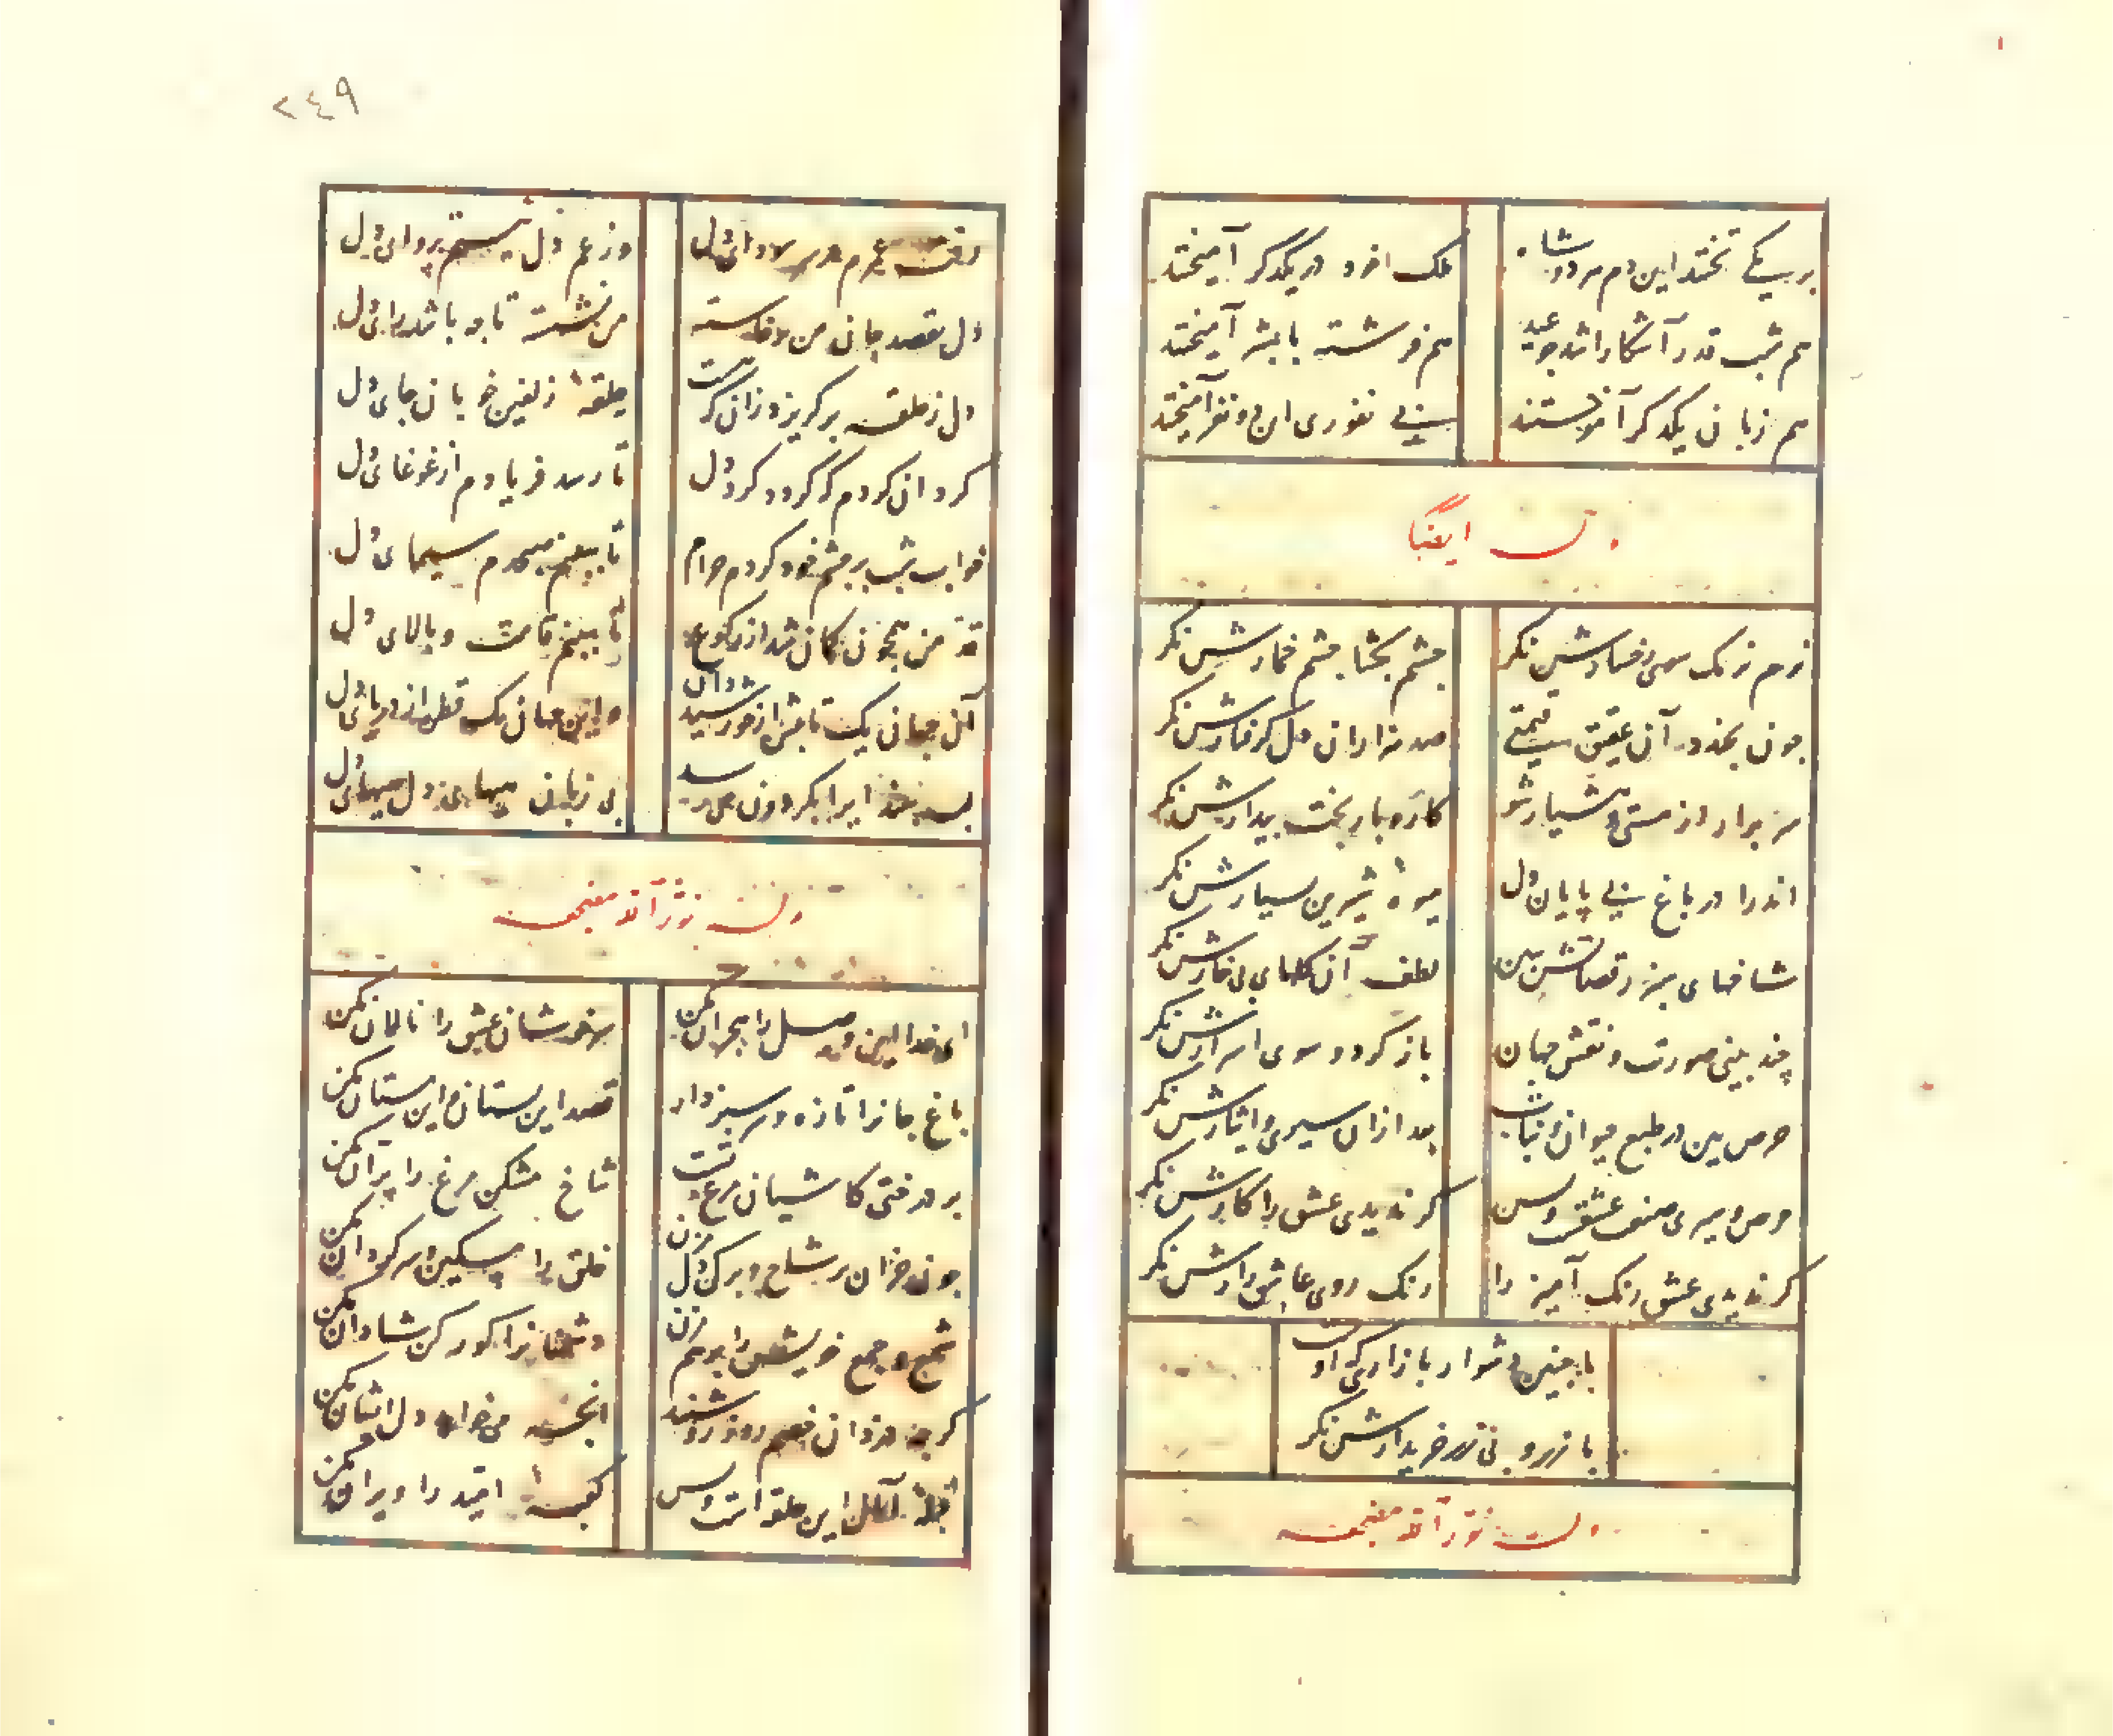 بر یکی تختند این دم هر دو شاه
ملک خود در یکدگر آمیختند
هم شب قدر آشکارا شد چو عید
هم فرشته با بشر آمیختند
هم زبان یکدگر آموختند
بی نفوری این دو نفر آمیختند
وله ایضا
نرم نرمک سوی رخسارش نکر
چشم بکشا چشم خمارش نکر
چون بخندد آن عقیق قیمتی
صد هزاران دل کرفتارش نکر
سر برار از مستی و هشیار شو
کار و بار بخت بیدارش نکر
اندرا در باغ بی پایان دل
میوهٔ شیرین بسیارش نکر
شاخهای سبز رقصانش ببین
لطف آن کلهای بی خارش نکر
چند بینی صورت و نقش جهان
باز کرد و سوی اسرارش نکر
حرص بین در طبع حیوان و نبات
بعد ازان سیری و ایثارش نکر
حرص و سیری صنعت عشقست و بس
کر ندیدی عشق را کارش نکر
کر ندیدی عشق رنک آمیز را
رنک روی عاشق زارش نکر
با چنین دشوار بازاری که اوست
با زر و بی زر خریدارش نکر
وله نور الله مضجعه
٢٤٩
رفت عمرم در سر سودای دل
وز غم دل نیستم پروای دل
دل بقصد جان من برخاسته
من نشسته تا چه باشد رای دل
دل ز حلقه بر کریزد زان که هست
حلقهٔ زلفین خوبان جای دل
کرد او کردم که کردد کرد دل
تا رسد فریادم از غوغای دل
خواب شب بر چشم خود کردم حرام
تا ببینم صبحدم سیمای دل
قد من همچون کمان شد از رکوع
تا ببینم قامت و بالای دل
آن جهان یک تابش از خورشید دل
واین جهان یک قطره از دریای دل
لب ببند ایرا بکردون می رسد
بی زبان هیهای دل هیهای دل
وله نور الله مضجعه
ای خدا این وصل را هجران مکن
سرخوشان عشق را نالان مکن
باغ جانرا تازه و سرسبز دار
قصد این بستان و این مستان مکن
بر درختی کاشیان مرغ تست
شاخ مشکن مرغ را پران مکن
چون خزان بر شاخ و برک دل مزن
خلق را مسکین و سرکردان مکن
شمع و جمع خویش را برهم مزن
دشمنانرا کور کن شادان مکن
کر چه دزدان خصم روز روشنند
انچه می خواهد دل ایشان مکن
قبلهٔ آمال این حلقه است و بس
کعبهٔ امید را ویران مکن